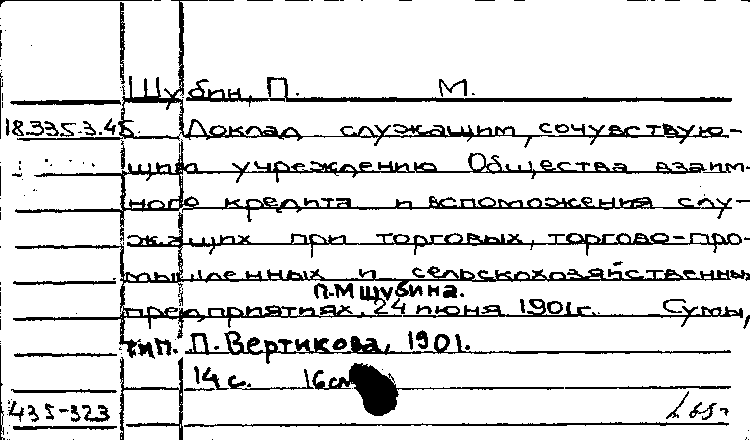 Шубин, П. М.
18.335.3.45. Доклад служащим, сочувствую-
щим учреждению Общества взаим-
ного кредита и вспоможения слу-
жащих при торговых, торгово-про-
мышленных и сельскохозяйственных
П.М Шубина.
предприятиях, 24 июня 1901г. Сумы,
тип. П. Вертикова, 1901.
14 с. 16 см
435-323